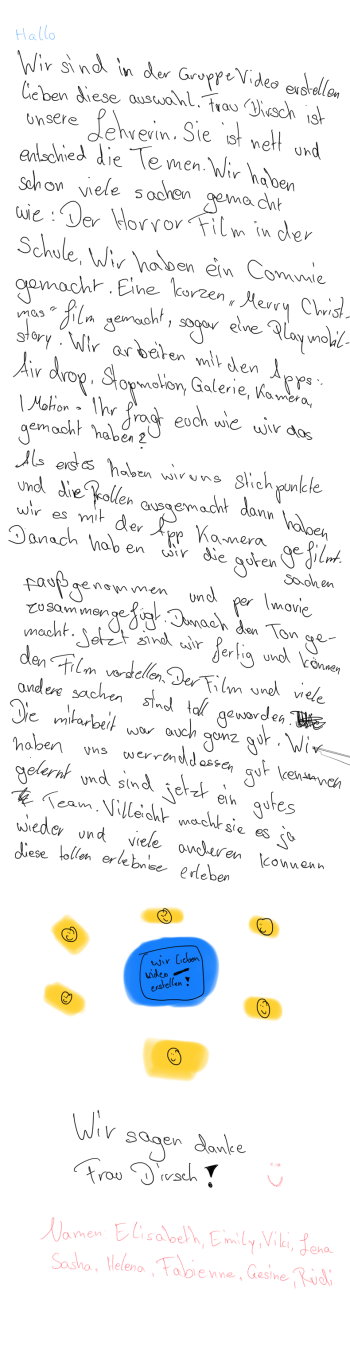 Hallo
Wir sind in der Gruppe Video erstellen
lieben diese auswahl. Frau Dirsch ist
unsere Lehrerin. Sie ist nett und
entschied die Temen. Wir haben
schon viele sachen gemacht
wie: Der Horror Film in der
Schule, Wir haben ein Commie
gemacht. Eine kurzen „Merry Christ-
mas" film gemacht, sogar eine Playmobil-
story. Wir arbeiten mit den Apps:
Airdrop, Stopmotion, Galerie, Kamera,
I Motion. Ihr fragt euch wie wir das
gemacht haben?
Als erstes haben wir uns Stichpunkte
und die Rollen ausgemacht dann haben
wir es mit der App Kamera gefilmt.
Danach haben wir die guten sachen
raufgenommen und per Imovie
zusammengefügt. Danach den Ton ge-
macht. Jetzt sind wir fertig und können
den Film vorstellen. Der Film und viele
andere sachen sind toll geworden.
Die mitarbeit war auch ganz gut. Wir
haben uns werrenddessen gut kennen
gelernt und sind jetzt ein gutes
Team. Villeicht macht sie es ja
wieder und viele anderen konnenn
diese tollen erlebnise erleben
wir lieben
video
erstellen!
Wir sagen danke
Frau Dirsch!
Namen: Elisabeth, Eimily, Viki, Lena
Sasha, Helena, Fabienne, Gesine, Rudi